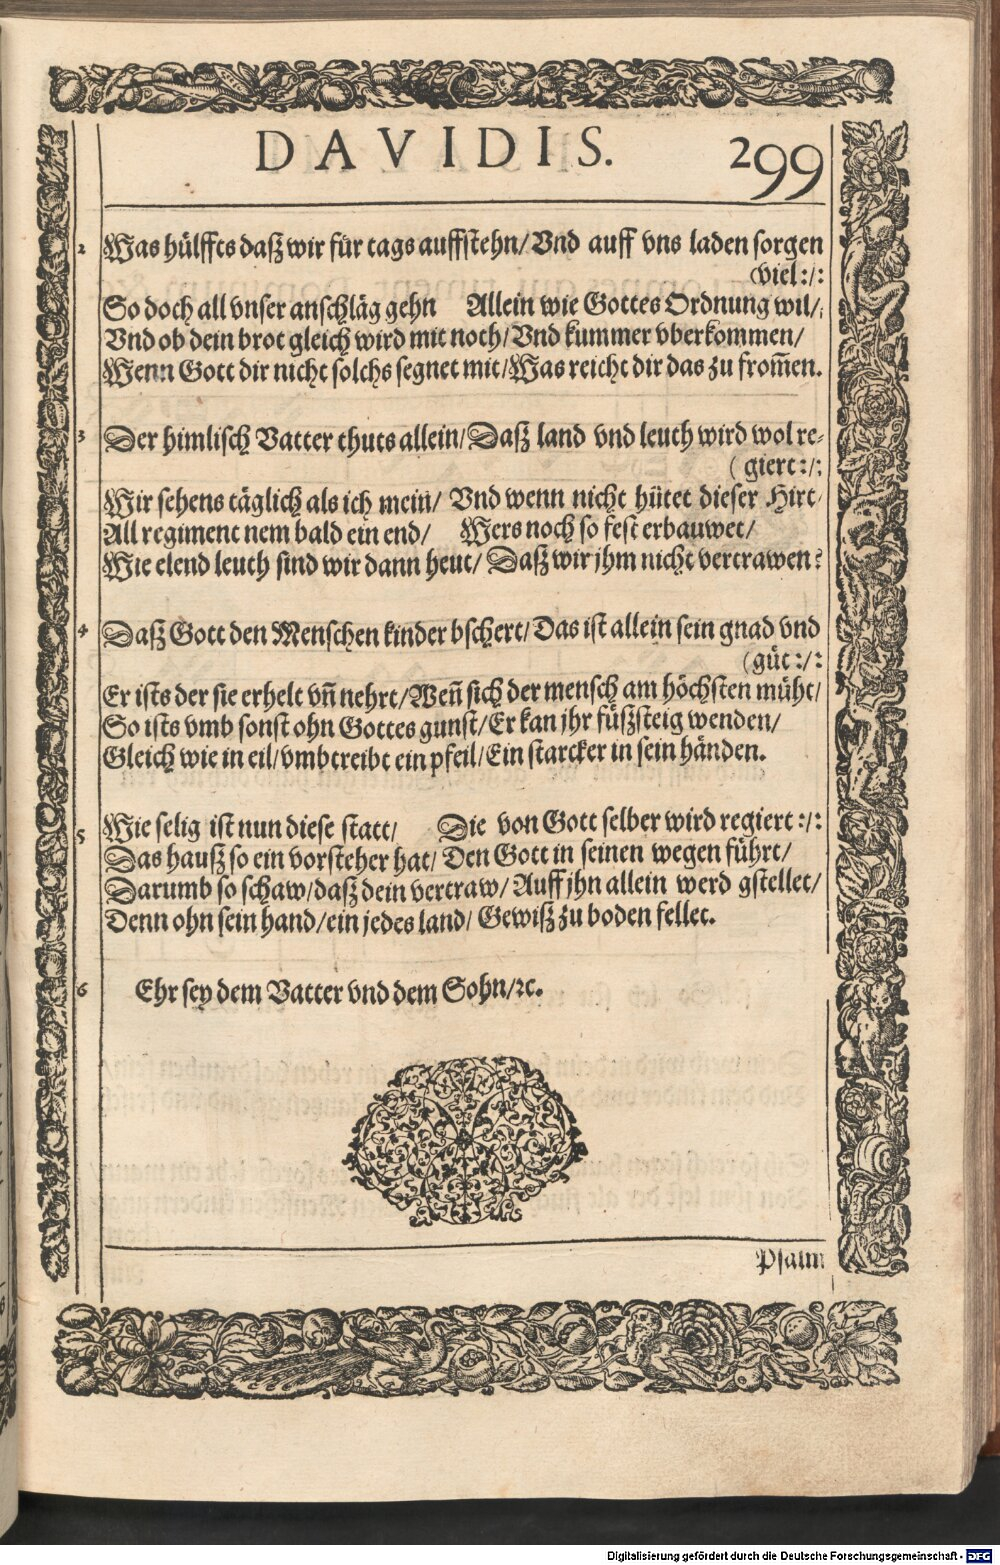 DAVIDIS. 299
2 Was hülffts daß wir für tags auffstehn/ Vnd auff vns laden sorgen
(viel:/:
So doch all vnser anschläg gehn Allein wie Gottes Ordnung wil/:
Vnd ob dein brot gleich wird mit noth/ Vnd kummer vberkommen/
Wenn Gott dir nicht solchs segnet mit/ Was reicht dir das zu from̃en.
3 Der himlisch Vatter thuts allein/ Daß land vnd leuth wird wol re-
(giert:/:
Wir sehens täglich als ich mein/ Vnd wenn nicht hütet dieser Hirt/
All regiment nem bald ein end/ Wers noch so fest erbauwet/
Wie elend leuth sind wir dann heut/ Daß wir jhm nicht vertrawen?
4 Daß Gott den Menschen kinder bschert/ Das ist allein sein gnad vnd
(güt:/:
Er ists der sie erhelt vñ nehrt/ Weñ sich der mensch am höchsten müht/
So ists vmb sonst ohn Gottes gunst/ Er kan jhr füßsteig wenden/
Gleich wie in eil/ vmbtreibt ein pfeil/ Ein starcker in sein händen.
5 Wie selig ist nun diese statt/ Die von Gott selber wird regiert:/:
Das hauß so ein vorsteher hat/ Den Gott in seinen wegen führt/
Darumb so schaw/ daß dein vertraw/ Auff jhn allein werd gstellet/
Denn ohn sein hand/ ein jedes land/ Gewiß zu boden fellet.
6 Ehr sey dem Vatter vnd dem Sohn/ ꝛc.
Psalm
Digitalisierung gefördert durch die Deutsche Forschungsgemeinschaft - DFG